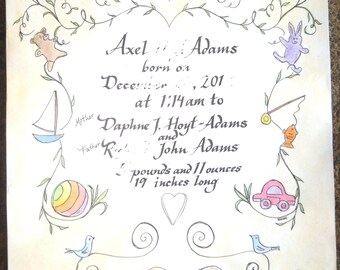 Axel Adams
born on
December ,201
at 1:14am to
Mother Daphne J. Hoyt-Adams
and
Father John Adams
pounds and 11 ounces
19 inches long